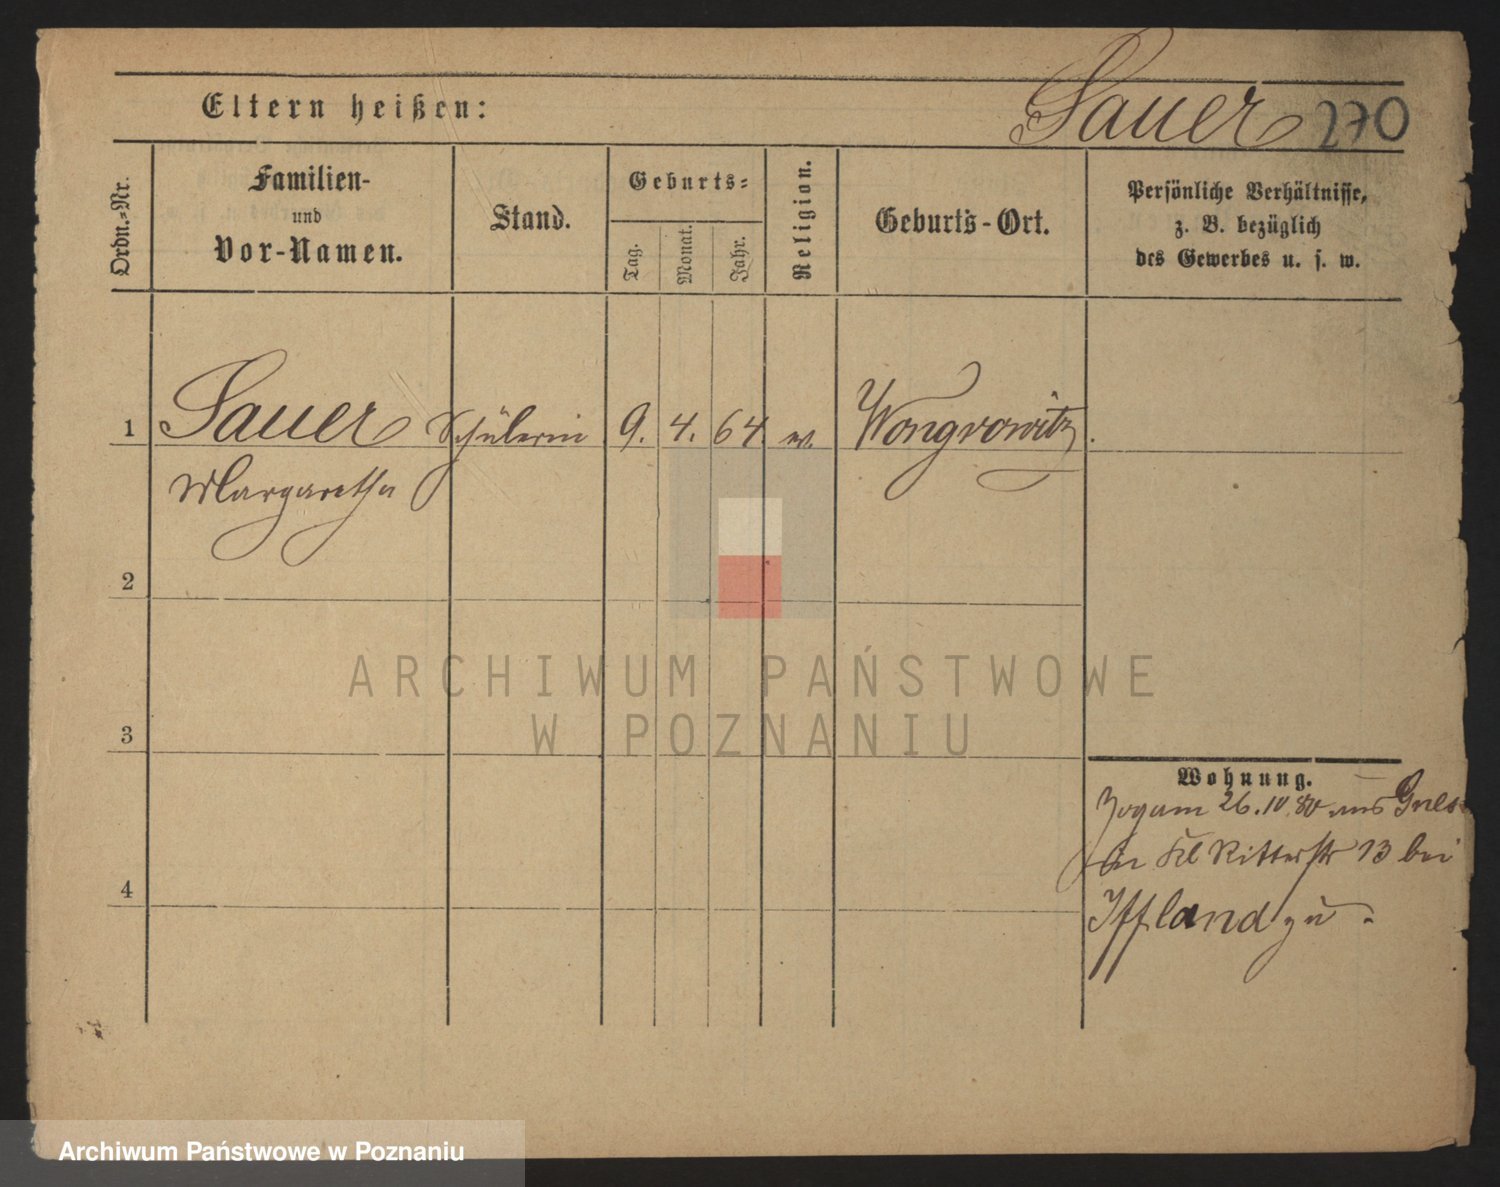 Sauer 270
Eltern heißen:
Ordn.-Nr.
Familien-
und
Vor-Namen.
Stand.
Geburts-
Tag.
Monat.
Jahr.
Religion.
Geburts-Ort.
Persönliche Verhältnisse,
z. B. bezüglich
des Gewerbes u. s. w.
1 Sauer Schülerin 9. 4. 64 Wongrowitz.
Margaretha
2
3
4
Wohnung.
Zog am 26.10.80 aus Gnes
in Kl Ritterstr 13 bei
Iffland zu.
ARCHIWUM PAŃSTWOWE
W POZNANIU
Archiwum Państwowe w Poznaniu